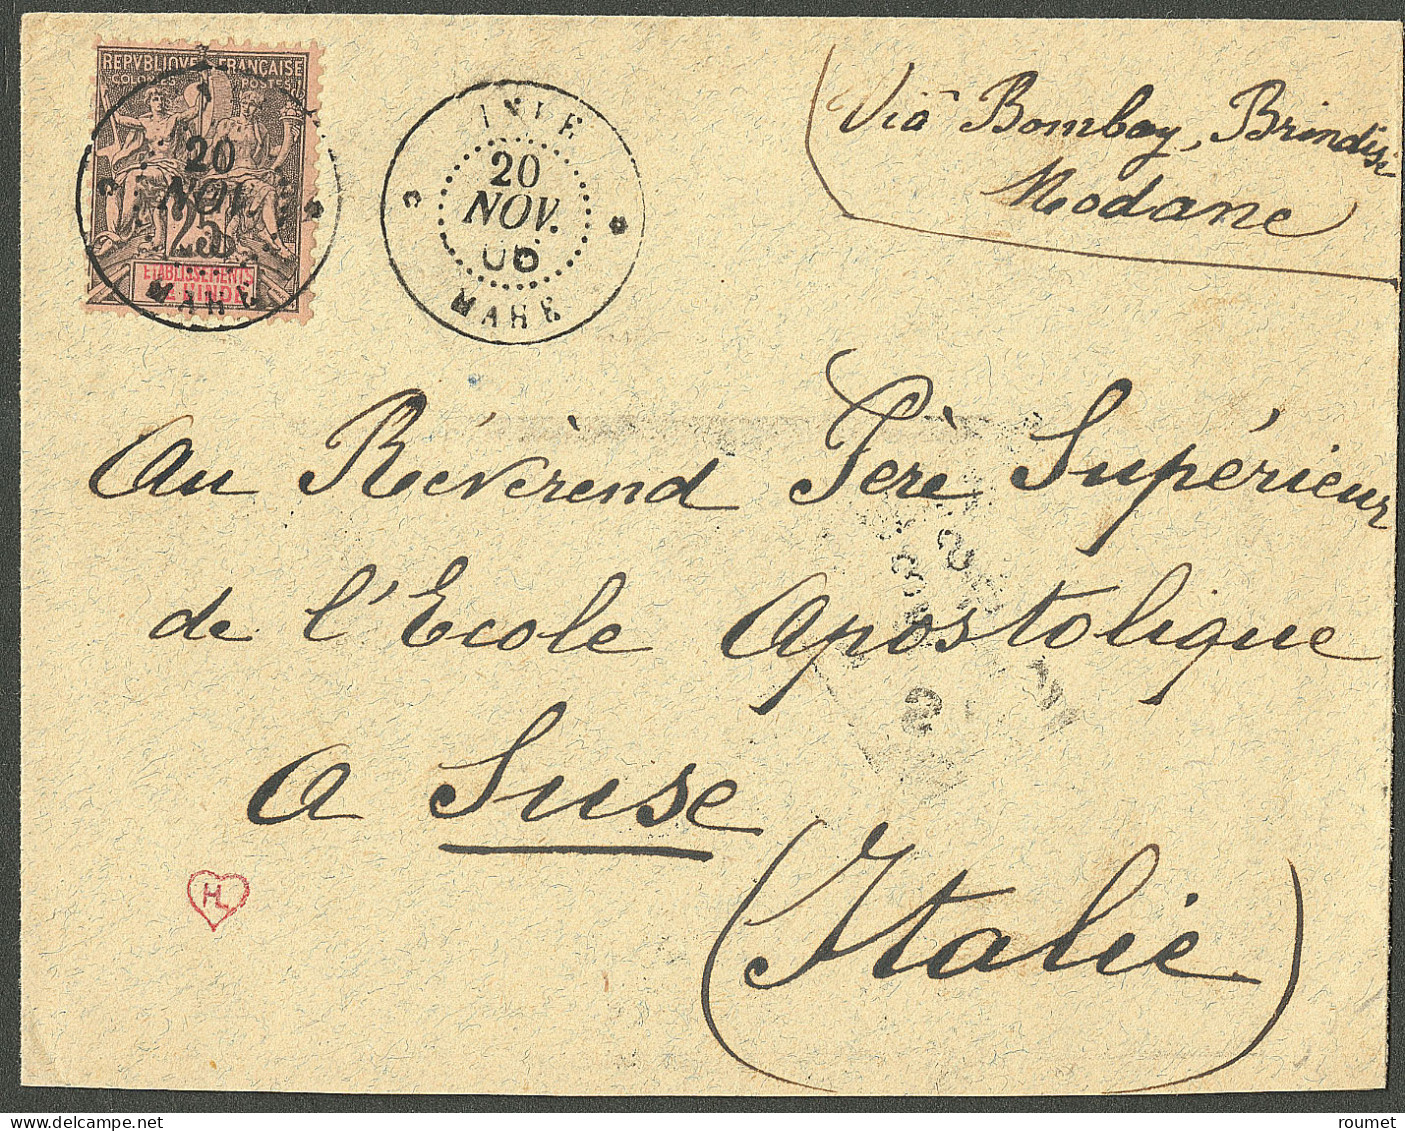 REPVBLIQVE FRANÇAISE
COLONIES POSTES
20
NOV.
25
ETABLISSEMENTS
DE L'INDE
MAHE
INDE
20
NOV.
06
MAHE
Viâ Bombay, Brindisi
Modane
Au Révèrend Père Supérieur
de l'Ecole Apostolique
A Suse
(Italie)
HL
roumet